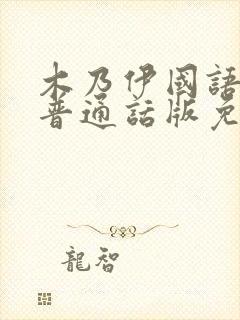 木乃伊國語
普通話版免
龍智